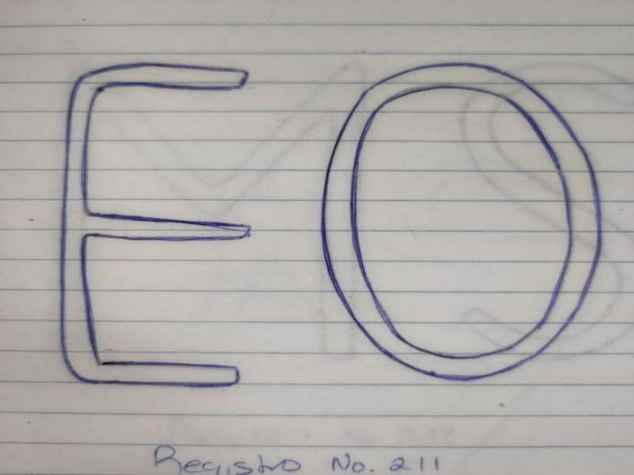 EO
Registro No. 211